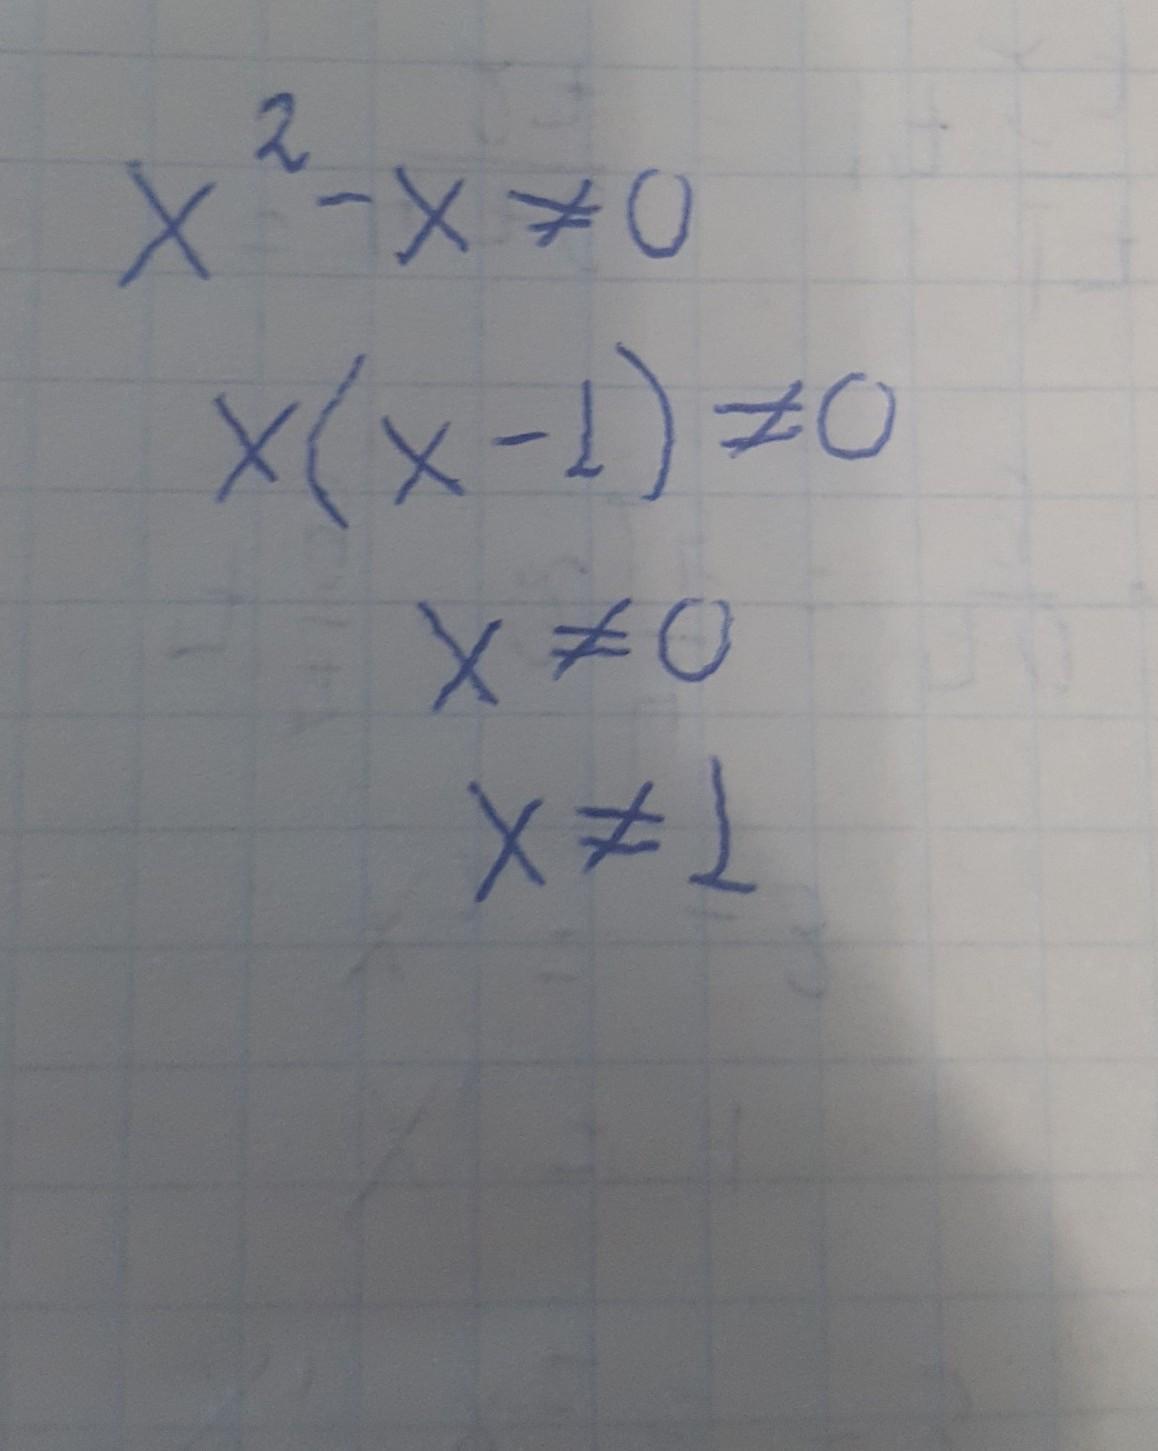 x² - x ≠ 0
x(x - 1) ≠ 0
x ≠ 0
x ≠ 1